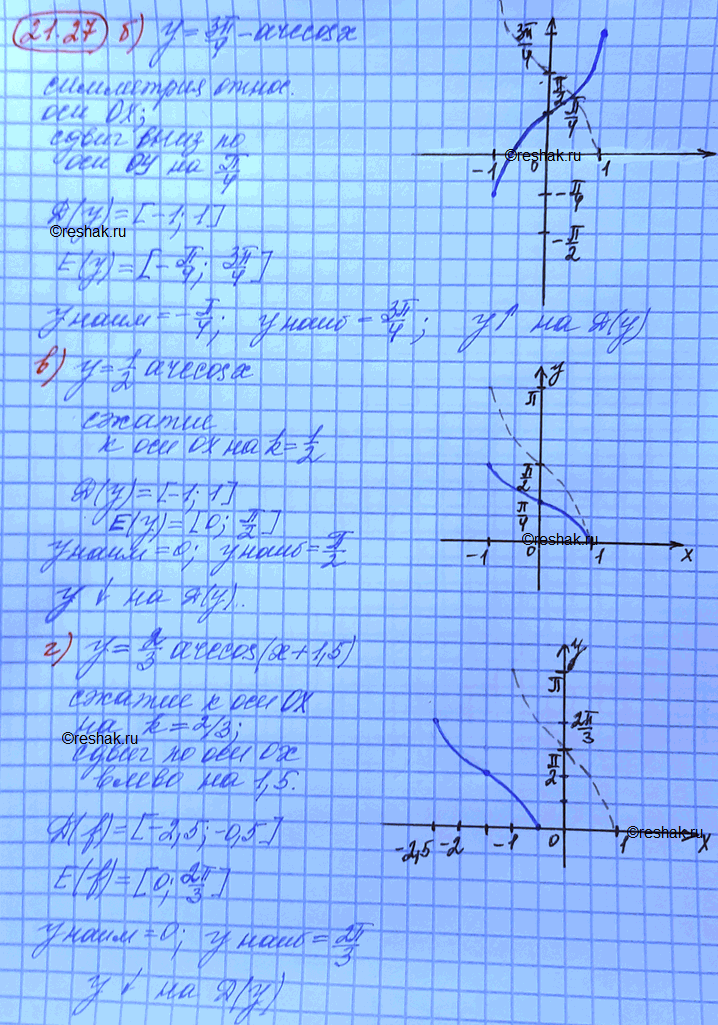 21.27 б) y = 3π/4 - arccosx
симметрия относ.
оси OX;
сдвиг вниз по
оси OY на π/4
D(y) = [-1; 1]
©reshak.ru
E(y) = [-π/4; 3π/4]
y наим = -π/4; y наиб = 3π/4; y↑ на D(y)
3π/4
π/2
π/4
-1 0 1
©reshak.ru
-π/4
-π/2
в) y = 1/2 arccosx
сжатие
к оси OX на k = 1/2
D(y) = [-1; 1]
E(y) = [0; π/2]
y наим = 0; y наиб = π/2
y ↓ на D(y).
y
π
π/2
π/4
©reshak.ru
-1 0 1 x
г) y = 2/3 arccos(x + 1,5)
сжатие к оси OX
на k = 2/3;
©reshak.ru
сдвиг по оси OX
влево на 1,5.
D(f) = [-2,5; -0,5]
E(f) = [0; 2π/3]
y наим = 0; y наиб = 2π/3
y ↓ на D(y)
y
π
2π/3
π/2
©reshak.ru
-2,5 -2 -1 0 1 X